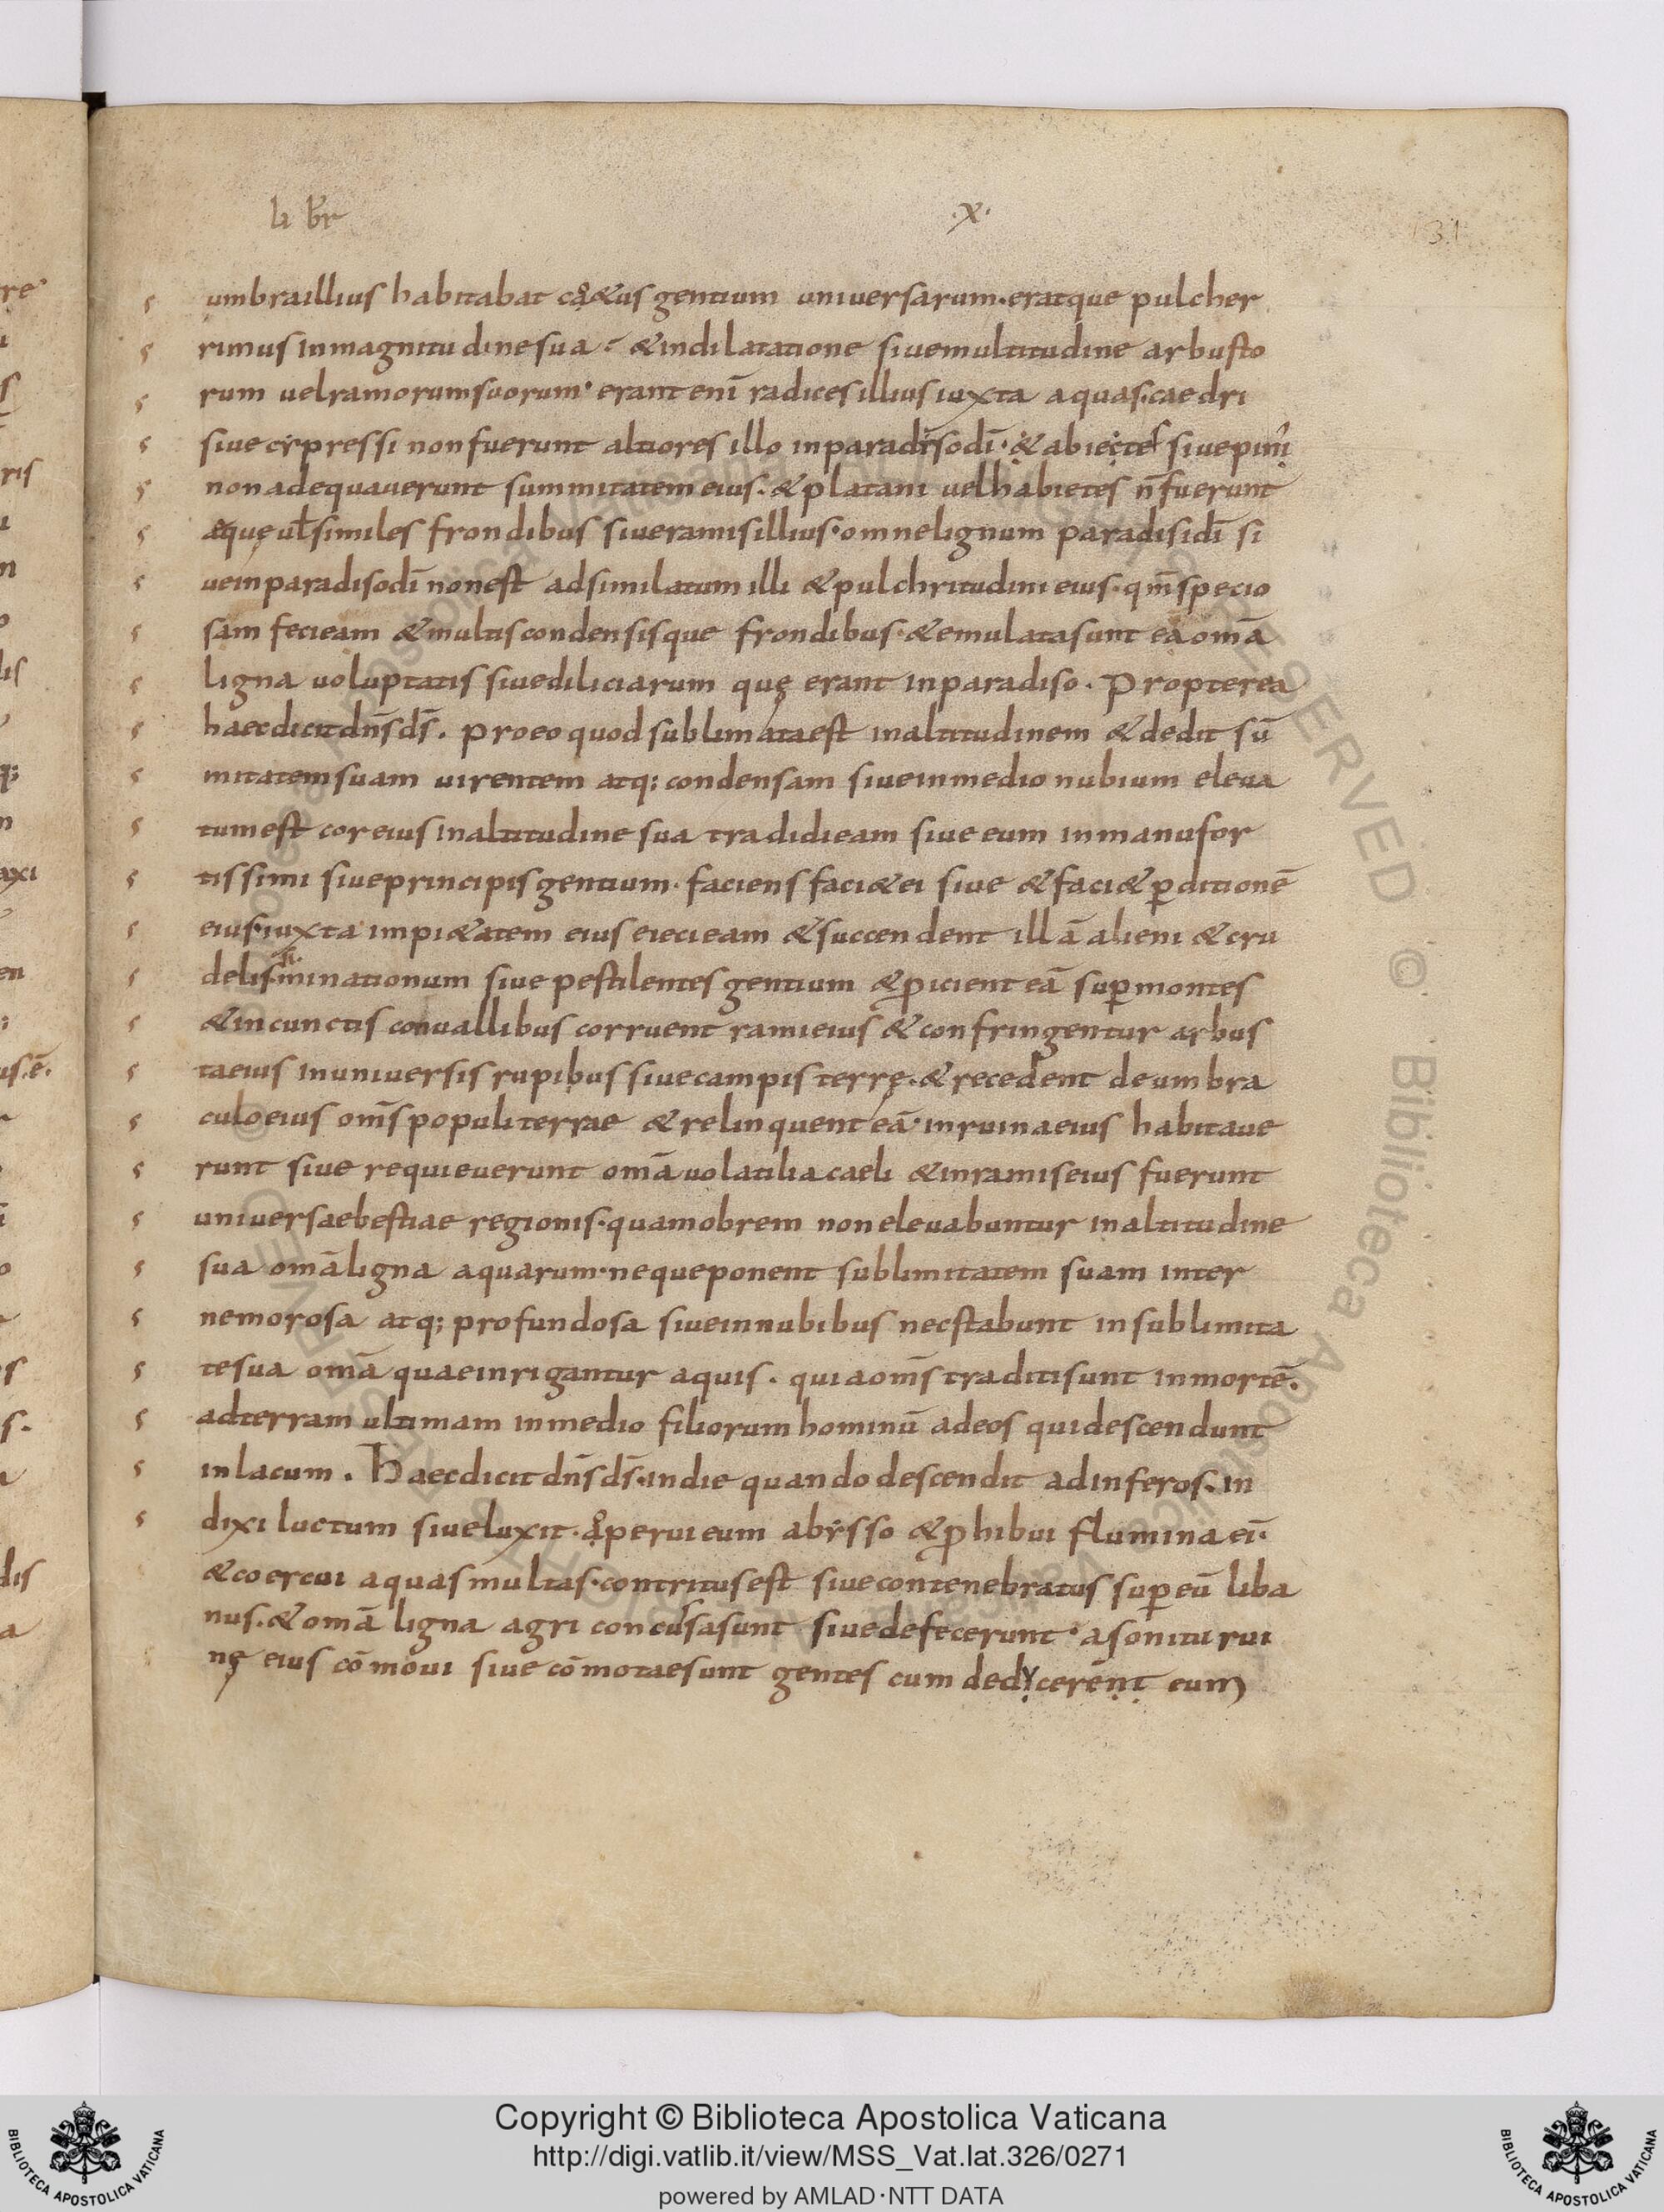 li br ·x· 131
umbra illius habitabat cętus gentium universarum. eratque pulcher
rimus in magnitudine sua & in dilatatione sive multitudine arbusto
rum vel ramorum suorum. erant enī radices illius iuxta aquas. caedri
sive cypressi non fuerunt altiores illo in paradiso dī. & abietes sive pini
non adequaverunt summitatem eius. & platani vel habietes n̄ fuerunt
aeque ut similes frondibus sive ramis illius. omne lignum paradisi dī si
ve in paradiso dī non est adsimilatum illi & pulchritudini eius. qm̄ specio
sam feci eam & multis condensisque frondibus. & emulata sunt eā omā
ligna voluptatis sive diliciarum quę erant in paradiso. Propterea
haec dicit dn̄s ds̄. pro eo quod sublimata est in altitudinem & dedit sū
mitatem suam virentem atq; condensam sive in medio nubium eleva
tum est cor eius in altitudine sua tradidi eam sive eum in manu for
tissimi sive principis gentium. faciens faci& ei sive & faci& p̱ditionē
eius. iuxta impi&atem eius eieci eam & succendent illā alieni & cru
delis. minationum sive pestilentes gentium & p̱icient eā sup̱ montes
& in cunctis convallibus corruent rami eius & confringentur arbus
ta eius in universis rupibus sive campis terrę. & recedent de umbra
culo eius om̄s populi terrae & relinquent eā. in ruina eius habitave
runt sive requieverunt omā volatilia caeli & in ramis eius fuerunt
universae bestiae regionis. quam obrem non elevabuntur in altitudine
sua omā ligna aquarum. neque ponent sublimitatem suam inter
nemorosa atq; profundosa sive in nubibus nec stabunt in sublimita
te sua omā quae inrigantur aquis. quia om̄s traditi sunt in mortē.
ad terram ultimam in medio filiorum hominū ad eos qui descendunt
in lacum. Haec dicit dn̄s ds̄. in die quando descendit ad inferos. in
dixi luctum sive luxit. operui eum abysso & p̱hibui flumina ei.
& coercui aquas multas. contritus est sive contenebratus sup̱ eū liba
nus. & omā ligna agri concussa sunt sive defecerunt. a sonitu rui
nę eius cōmovi sive cōmotae sunt gentes cum deducerent eum
© Biblioteca Apostolica Vaticana
Copyright © Biblioteca Apostolica Vaticana
http://digi.vatlib.it/view/MSS_Vat.lat.326/0271
powered by AMLAD·NTT DATA
BIBLIOTECA APOSTOLICA VATICANA
BIBLIOTECA APOSTOLICA VATICANA